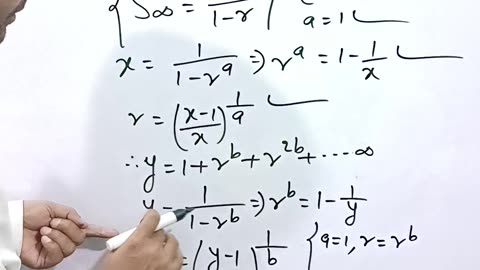 S∞ = 1/(1-r)
a = 1
x = 1/(1-r^a) ⇒ r^a = 1 - 1/x
r = ((x-1)/x)^(1/a)
∴ y = 1 + r^b + r^2b + ----∞
y = 1/(1-r^b) ⇒ r^b = 1 - 1/y
= (y-1)^(1/b) { a=1, r=r^b